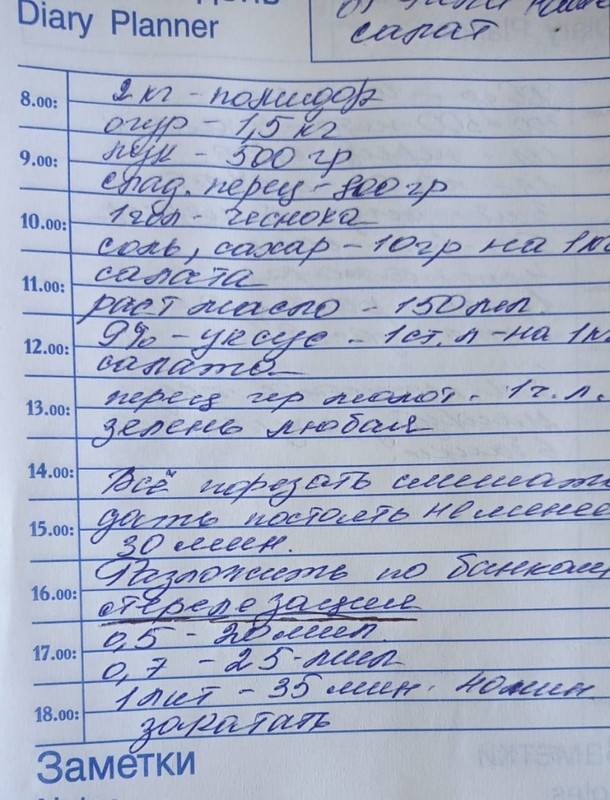 Diary Planner
салат
8.00:
2 кг - помидор
огур - 1,5 кг
9.00:
лук - 500 гр
слад. перец - 800 гр
10.00:
1 гол - чеснока
соль, сахар - 10гр на 1 кг
11.00:
салата
раст масло - 150 мл
12.00:
9% - уксус - 1 ст. л - на 1 кг
салата
перец чер молот. 1 ч. л.
13.00:
зелень любая
14.00:
Всё порезать смешать
15.00:
дать постоять не менее
30 мин.
Разложить по банкам
16.00:
стерелезация
0,5 - 20 мин.
17.00:
0,7 - 25 - мин
1 лит - 35 мин. 40 мин.
18.00:
закатать
Заметки